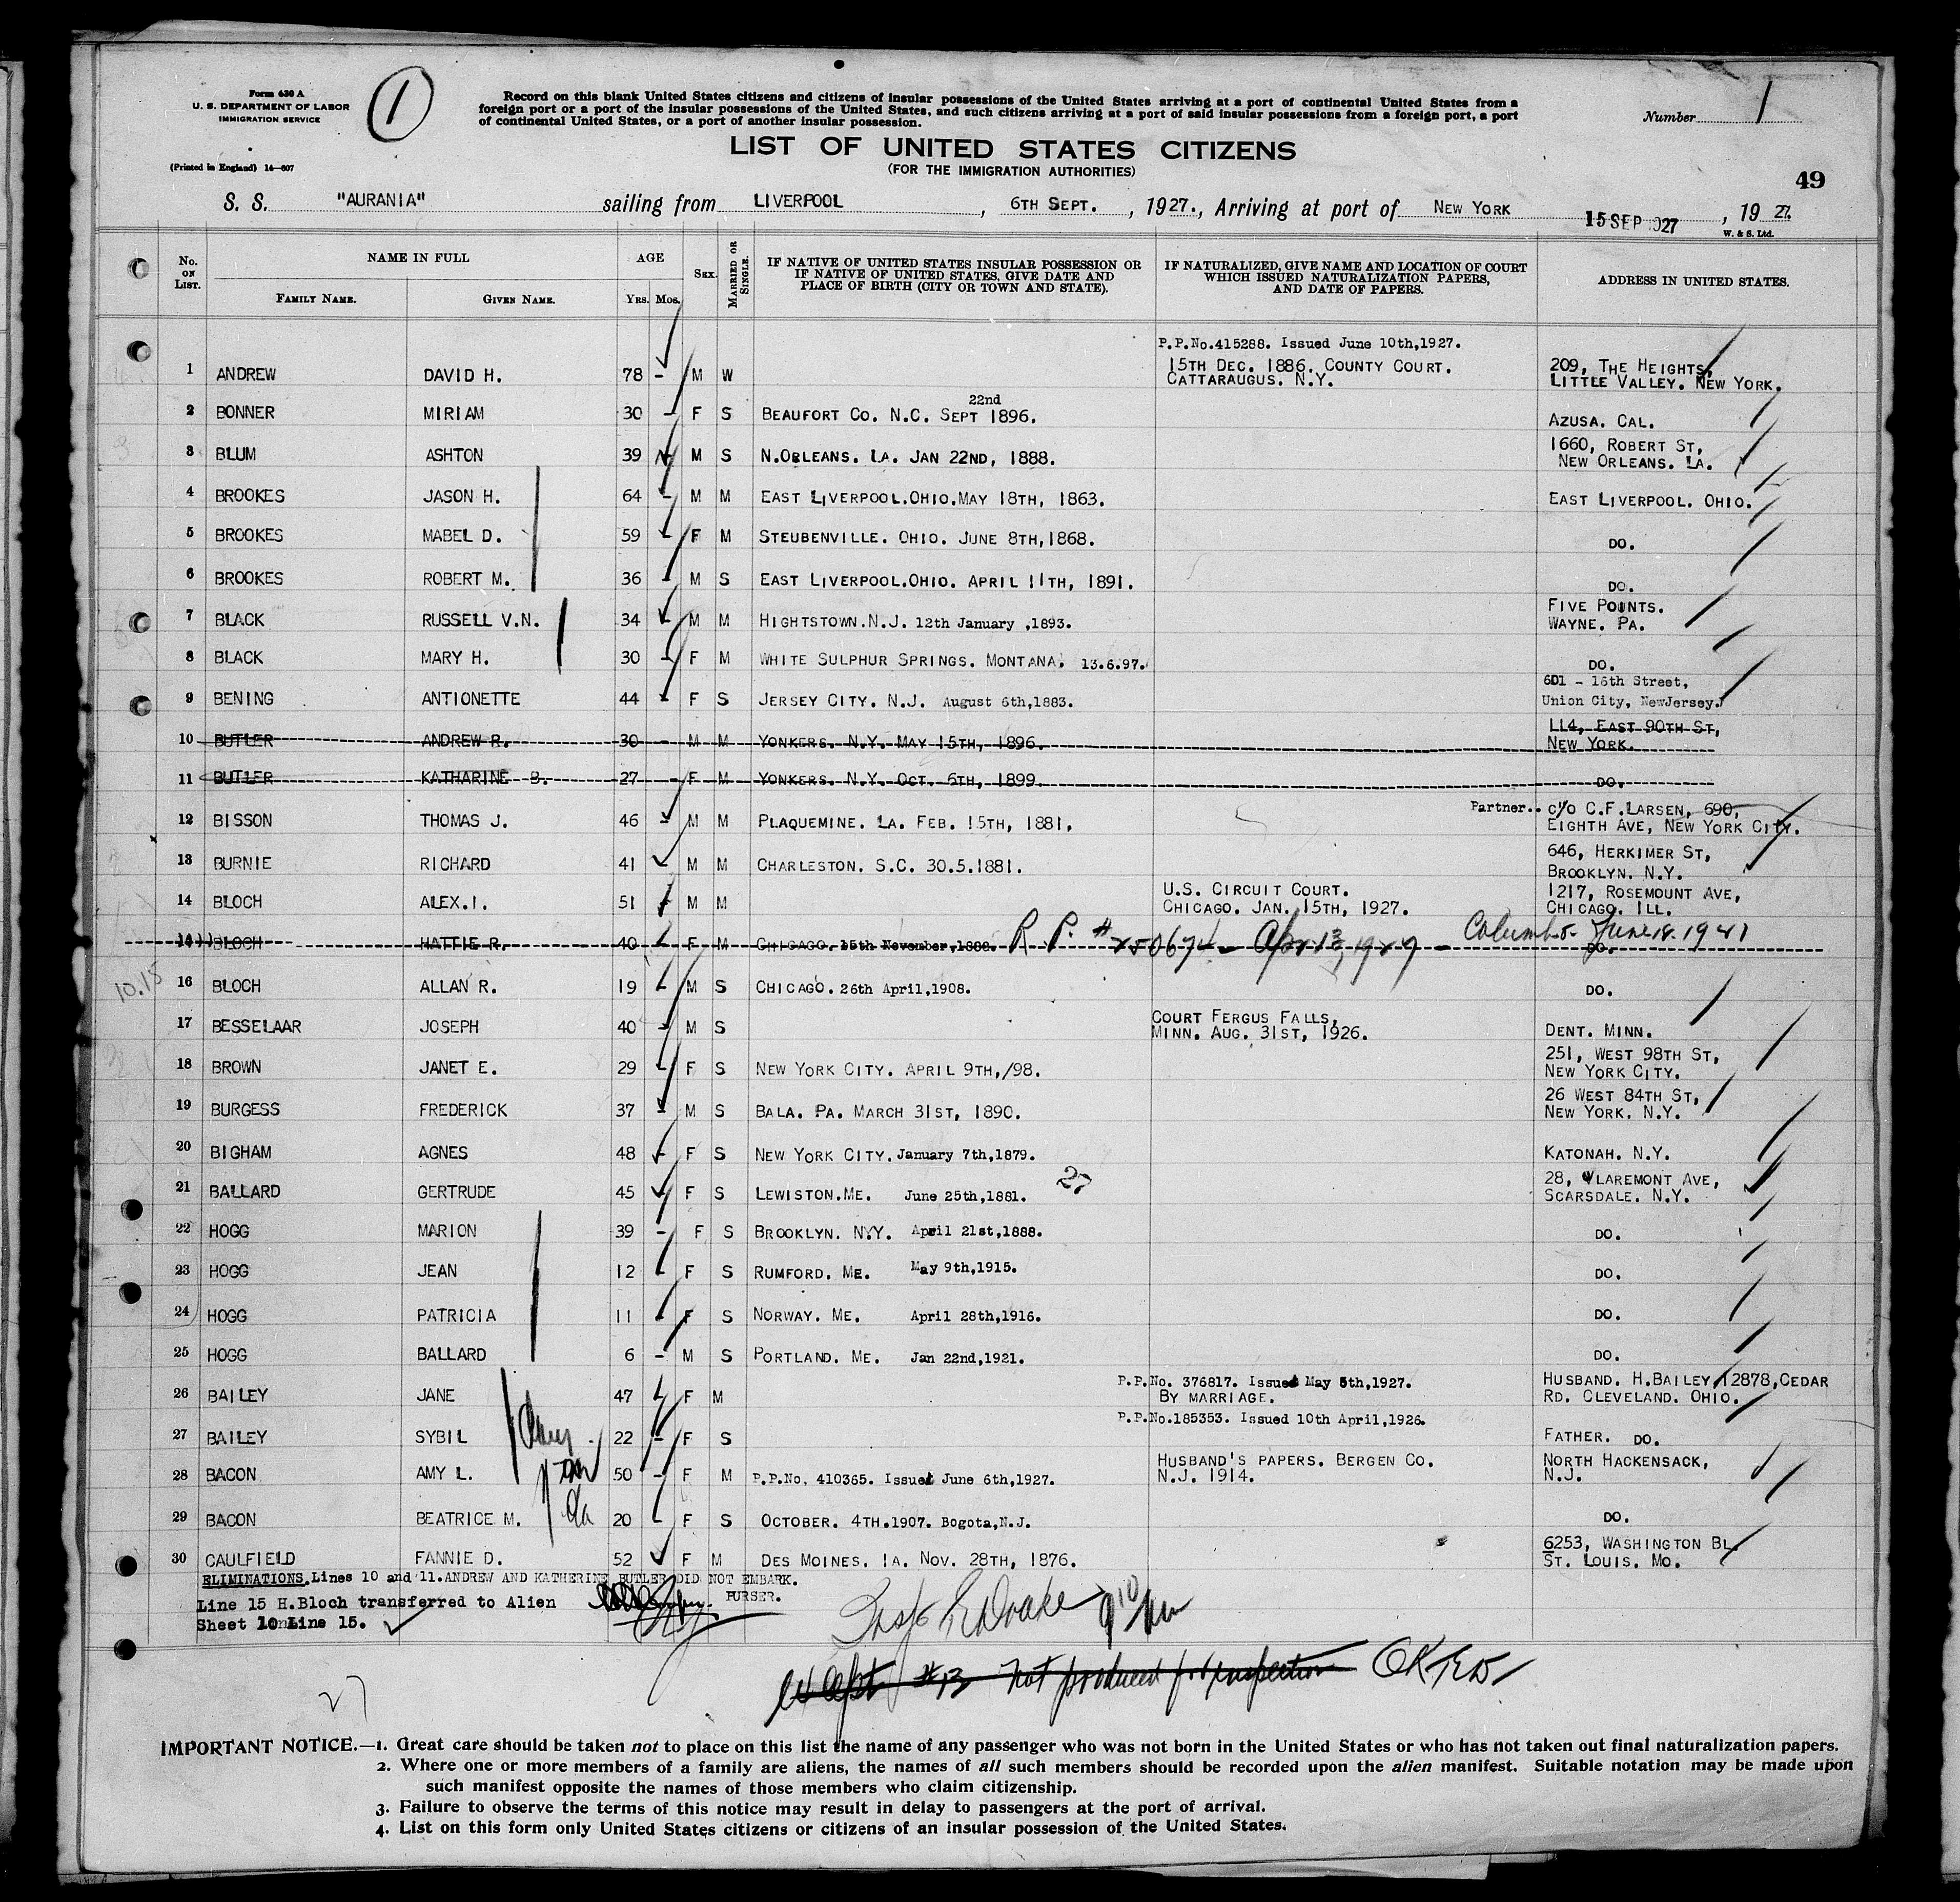 Form 630 A
U. S. DEPARTMENT OF LABOR
IMMIGRATION SERVICE
(Printed in England) 14—607
1
Record on this blank United States citizens and citizens of insular possessions of the United States arriving at a port of continental United States from a
foreign port or a port of the insular possessions of the United States, and such citizens arriving at a port of said insular possessions from a foreign port, a port
of continental United States, or a port of another insular possession.
Number 1
LIST OF UNITED STATES CITIZENS
(FOR THE IMMIGRATION AUTHORITIES)
49
S. S. "AURANIA" sailing from LIVERPOOL, 6TH SEPT., 1927., Arriving at port of NEW YORK 15 SEP 1927, 19 27.
W. & S. Ltd.
No. ON LIST. NAME IN FULL FAMILY NAME. GIVEN NAME. AGE YRS. MOS. SEX. MARRIED OR SINGLE. IF NATIVE OF UNITED STATES INSULAR POSSESSION OR IF NATIVE OF UNITED STATES, GIVE DATE AND PLACE OF BIRTH (CITY OR TOWN AND STATE). IF NATURALIZED, GIVE NAME AND LOCATION OF COURT WHICH ISSUED NATURALIZATION PAPERS, AND DATE OF PAPERS. ADDRESS IN UNITED STATES.
P.P.No.415288. Issued June 10th,1927.
1 ANDREW DAVID H. 78 - M W 15TH DEC. 1886. COUNTY COURT. CATTARAUGUS. N.Y. 209, THE HEIGHTS, LITTLE VALLEY. NEW YORK.
2 BONNER MIRIAM 30 - F S BEAUFORT CO. N.C. SEPT 22nd 1896. AZUSA. CAL.
3 BLUM ASHTON 39 M S N.ORLEANS. LA. JAN 22ND, 1888. 1660, ROBERT ST, NEW ORLEANS. LA.
4 BROOKES JASON H. 64 - M M EAST LIVERPOOL.OHIO.MAY 18TH, 1863. EAST LIVERPOOL. OHIO.
5 BROOKES MABEL D. 59 - F M STEUBENVILLE. OHIO. JUNE 8TH,1868. DO.
6 BROOKES ROBERT M. 36 - M S EAST LIVERPOOL.OHIO. APRIL 11TH, 1891. DO.
7 BLACK RUSSELL V.N. 34 M M HIGHTSTOWN.N.J. 12th January ,1893. FIVE POINTS. WAYNE. PA.
8 BLACK MARY H. 30 - F M WHITE SULPHUR SPRINGS. MONTANA. 13.6.97. DO.
9 BENING ANTIONETTE 44 - F S JERSEY CITY. N.J. August 6th,1883. 601 - 16th Street, Union City, NewJersey.
10 BUTLER ANDREW R. 30 - M M YONKERS. N.Y. MAY 15TH, 1896. LL4, EAST 90TH ST, NEW YORK.
11 BUTLER KATHARINE B. 27 - F M YONKERS. N.Y. OCT. 6TH, 1899. DO.
12 BISSON THOMAS J. 46 - M M PLAQUEMINE. LA. FEB. 15TH, 1881. Partner.. c/o C.F.LARSEN, 690, EIGHTH AVE, NEW YORK CITY.
13 BURNIE RICHARD 41 M M CHARLESTON. S.C. 30.5.1881. 646, HERKIMER ST, BROOKLYN. N.Y.
14 BLOCH ALEX.I. 51 - M M U.S. CIRCUIT COURT. CHICAGO. JAN. 15TH, 1927. 1217, ROSEMOUNT AVE, CHICAGO. ILL.
BLOCH HATTIE R. 40 - F M CHICAGO. 15th November,1888. R. P. # 250674 - Apr 13, 1927 - June 18. 1941 DO.
10.15
16 BLOCH ALLAN R. 19 - M S CHICAGO. 26th April,1908. DO.
17 BESSELAAR JOSEPH 40 - M S COURT FERGUS FALLS, MINN. AUG. 31ST, 1926. DENT. MINN.
18 BROWN JANET E. 29 - F S NEW YORK CITY. APRIL 9TH,/98. 251, WEST 98TH ST, NEW YORK CITY.
19 BURGESS FREDERICK 37 - M S BALA. PA. MARCH 31ST, 1890. 26 WEST 84TH ST, NEW YORK. N.Y.
20 BIGHAM AGNES 48 - F S NEW YORK CITY. January 7th,1879. KATONAH. N.Y.
21 BALLARD GERTRUDE 45 F S LEWISTON.ME. June 25th,1881. 27 28, CLAREMONT AVE, SCARSDALE. N.Y.
22 HOGG MARION 39 - F S BROOKLYN. N.Y. April 21st,1888. DO.
23 HOGG JEAN 12 - F S RUMFORD. ME. May 9th,1915. DO.
24 HOGG PATRICIA 11 - F S NORWAY. ME. April 28th,1916. DO.
25 HOGG BALLARD 6 - M S PORTLAND. ME. Jan 22nd,1921. DO.
26 BAILEY JANE 47 - F M P.P.No. 376817. Issued May 5th,1927. BY MARRIAGE. HUSBAND. H.BAILEY,12878,CEDAR RD. CLEVELAND. OHIO.
27 BAILEY SYBIL 22 - F S P.P.No.185353. Issued 10th April,1926. FATHER. DO.
28 BACON AMY L. 50 - F M P.P.No. 410365. Issued June 6th,1927. HUSBAND'S PAPERS. BERGEN CO. N.J. 1914. NORTH HACKENSACK, N.J.
29 BACON BEATRICE M. 20 - F S OCTOBER. 4TH.1907. Bogota,N.J. DO.
30 CAULFIELD FANNIE D. 52 F M DES MOINES. IA. NOV. 28TH, 1876. 6253, WASHINGTON BL. ST. LOUIS. MO.
ELIMINATIONS. Lines 10 and 11. ANDREW AND KATHERINE BUTLER DID NOT EMBARK.
PURSER.
Line 15 H.Bloch transferred to Alien
Sheet 10 Line 15.
Insp Drake
except #13 not produced for inspection OK TED
27
IMPORTANT NOTICE.—1. Great care should be taken not to place on this list the name of any passenger who was not born in the United States or who has not taken out final naturalization papers.
2. Where one or more members of a family are aliens, the names of all such members should be recorded upon the alien manifest. Suitable notation may be made upon
such manifest opposite the names of those members who claim citizenship.
3. Failure to observe the terms of this notice may result in delay to passengers at the port of arrival.
4. List on this form only United States citizens or citizens of an insular possession of the United States.